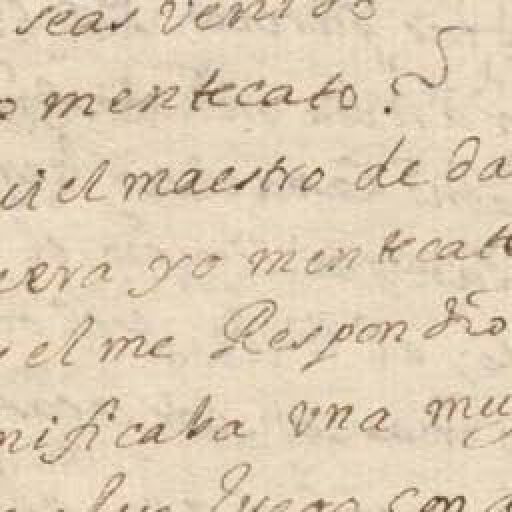 seas venido
o mentecato.
ui el maestro de da
uera yo mentecato
y el me Respondio
nificaba vna muy
luego con